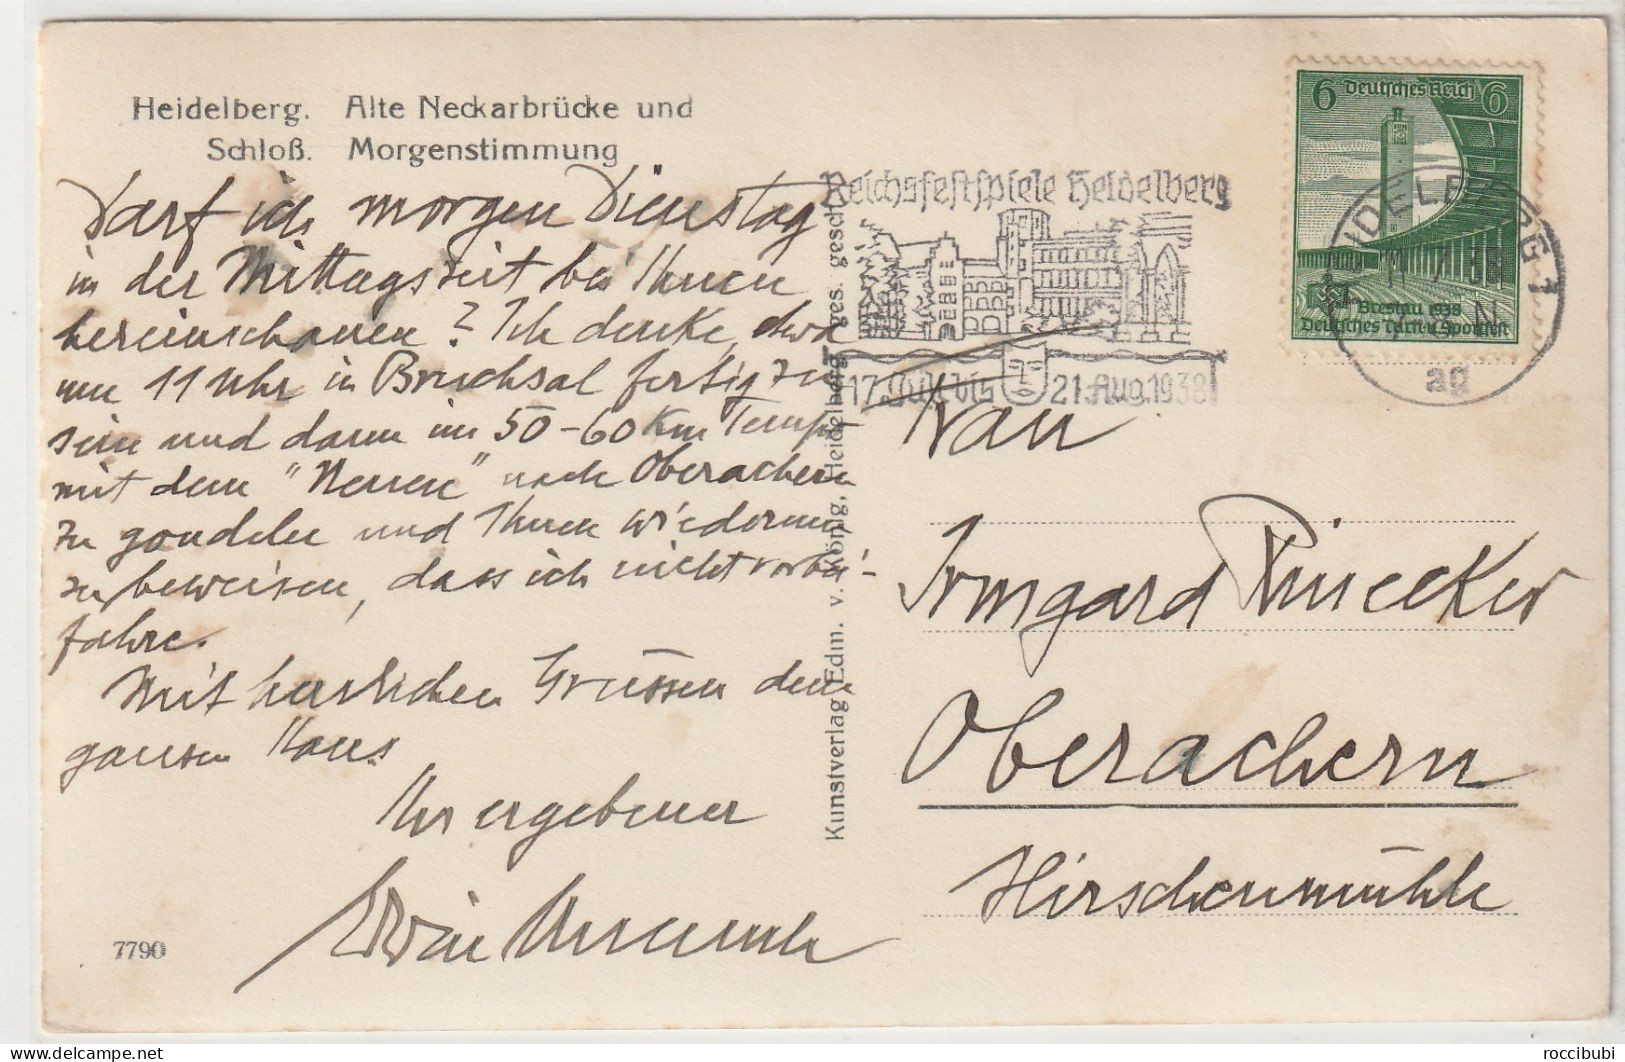 Heidelberg. Alte Neckarbrücke und
Schloß. Morgenstimmung
Darf ich morgen Dienstag
in der Mittagszeit bei Ihnen
hereinschauen? Ich denke, etwa
um 11 Uhr in Bruchsal fertig zu
sein und dann im 50-60 Km Tempo
mit dem "Neuen" nach Oberachern
zu gondeln und Ihnen wiederum
zu beweisen, dass ich nicht vorbei-
fahre.
Mit herzlichen Grüssen dem
ganzen Haus
Ihr ergebener
7790
Kunstverlag Edm. v. König, Heidelberg ges. gesch.
Reichsfestspiele Heidelberg
17. Juli bis 21. Aug. 1938
6 Deutsches Reich 6
Breslau 1938
Deutsches Turn- u. Sportfest
HEIDELBERG 1
ag
Frau
Irmgard
Oberachern
Hirschenmühle
roccibubi